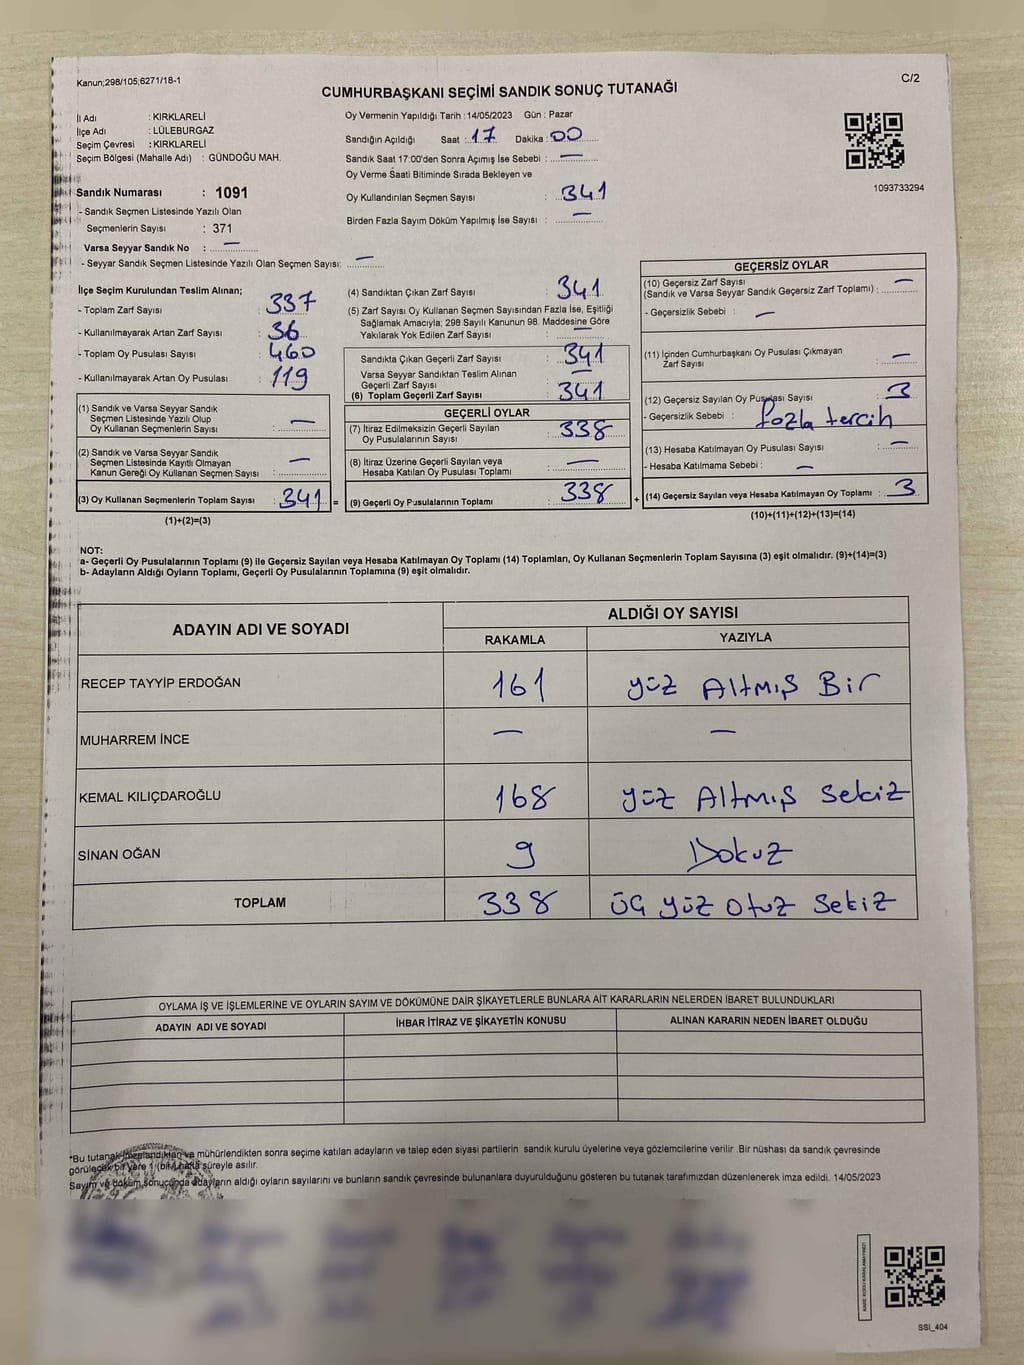 Kanun;298/105;6271/18-1
C/2
CUMHURBAŞKANI SEÇİMİ SANDIK SONUÇ TUTANAĞI
İl Adı : KIRKLARELİ
İlçe Adı : LÜLEBURGAZ
Seçim Çevresi : KIRKLARELİ
Seçim Bölgesi (Mahalle Adı) : GÜNDOĞU MAH.
Sandık Numarası : 1091
- Sandık Seçmen Listesinde Yazılı Olan
Seçmenlerin Sayısı : 371
Varsa Seyyar Sandık No : —
- Seyyar Sandık Seçmen Listesinde Yazılı Olan Seçmen Sayısı: —
Oy Vermenin Yapıldığı Tarih : 14/05/2023 Gün : Pazar
Sandığın Açıldığı Saat : 17 Dakika : 00
Sandık Saat 17:00'den Sonra Açımış İse Sebebi : —
Oy Verme Saati Bitiminde Sırada Bekleyen ve
Oy Kullandırılan Seçmen Sayısı : 341
Birden Fazla Sayım Döküm Yapılmış İse Sayısı : —
1093733294
İlçe Seçim Kurulundan Teslim Alınan;
- Toplam Zarf Sayısı : 337
- Kullanılmayarak Artan Zarf Sayısı : 36
- Toplam Oy Pusulası Sayısı : 460
- Kullanılmayarak Artan Oy Pusulası : 119
(1) Sandık ve Varsa Seyyar Sandık
Seçmen Listesinde Yazılı Olup
Oy Kullanan Seçmenlerin Sayısı : —
(2) Sandık ve Varsa Seyyar Sandık
Seçmen Listesinde Kayıtlı Olmayan
Kanun Gereği Oy Kullanan Seçmen Sayısı : —
(3) Oy Kullanan Seçmenlerin Toplam Sayısı : 341 =
(1)+(2)=(3)
(4) Sandıktan Çıkan Zarf Sayısı : 341
(5) Zarf Sayısı Oy Kullanan Seçmen Sayısından Fazla İse, Eşitliği
Sağlamak Amacıyla; 298 Sayılı Kanunun 98. Maddesine Göre
Yakılarak Yok Edilen Zarf Sayısı : —
Sandıkta Çıkan Geçerli Zarf Sayısı : 341
Varsa Seyyar Sandıktan Teslim Alınan
Geçerli Zarf Sayısı : —
(6) Toplam Geçerli Zarf Sayısı : 341
GEÇERLİ OYLAR
(7) İtiraz Edilmeksizin Geçerli Sayılan
Oy Pusulalarının Sayısı : 338
(8) İtiraz Üzerine Geçerli Sayılan veya
Hesaba Katılan Oy Pusulası Toplamı : —
(9) Geçerli Oy Pusulalarının Toplamı : 338 +
GEÇERSİZ OYLAR
(10) Geçersiz Zarf Sayısı
(Sandık ve Varsa Seyyar Sandık Geçersiz Zarf Toplamı) : —
- Geçersizlik Sebebi : —
(11) İçinden Cumhurbaşkanı Oy Pusulası Çıkmayan
Zarf Sayısı : —
(12) Geçersiz Sayılan Oy Pusulası Sayısı : 3
- Geçersizlik Sebebi : fazla tercih
(13) Hesaba Katılmayan Oy Pusulası Sayısı : —
- Hesaba Katılmama Sebebi : —
(14) Geçersiz Sayılan veya Hesaba Katılmayan Oy Toplamı : 3
(10)+(11)+(12)+(13)=(14)
NOT:
a- Geçerli Oy Pusulalarının Toplamı (9) ile Geçersiz Sayılan veya Hesaba Katılmayan Oy Toplamı (14) Toplamları, Oy Kullanan Seçmenlerin Toplam Sayısına (3) eşit olmalıdır. (9)+(14)=(3)
b- Adayların Aldığı Oyların Toplamı, Geçerli Oy Pusulalarının Toplamına (9) eşit olmalıdır.
ADAYIN ADI VE SOYADI
ALDIĞI OY SAYISI
RAKAMLA YAZIYLA
RECEP TAYYİP ERDOĞAN 161 yüz Altmış Bir
MUHARREM İNCE — —
KEMAL KILIÇDAROĞLU 168 yüz Altmış Sekiz
SİNAN OĞAN 9 Dokuz
TOPLAM 338 üç yüz otuz sekiz
OYLAMA İŞ VE İŞLEMLERİNE VE OYLARIN SAYIM VE DÖKÜMÜNE DAİR ŞİKAYETLERLE BUNLARA AİT KARARLARIN NELERDEN İBARET BULUNDUKLARI
ADAYIN ADI VE SOYADI İHBAR İTİRAZ VE ŞİKAYETİN KONUSU ALINAN KARARIN NEDEN İBARET OLDUĞU
*Bu tutanak imzalandıktan ve mühürlendikten sonra seçime katılan adayların ve talep eden siyasi partilerin sandık kurulu üyelerine veya gözlemcilerine verilir .Bir nüshası da sandık çevresinde
görülecek bir yere 1 (bir) hafta süreyle asılır.
Sayım ve döküm sonucunda adayların aldığı oyların sayılarını ve bunların sandık çevresinde bulunanlara duyurulduğunu gösteren bu tutanak tarafımızdan düzenlenerek imza edildi. 14/05/2023
SSI_404